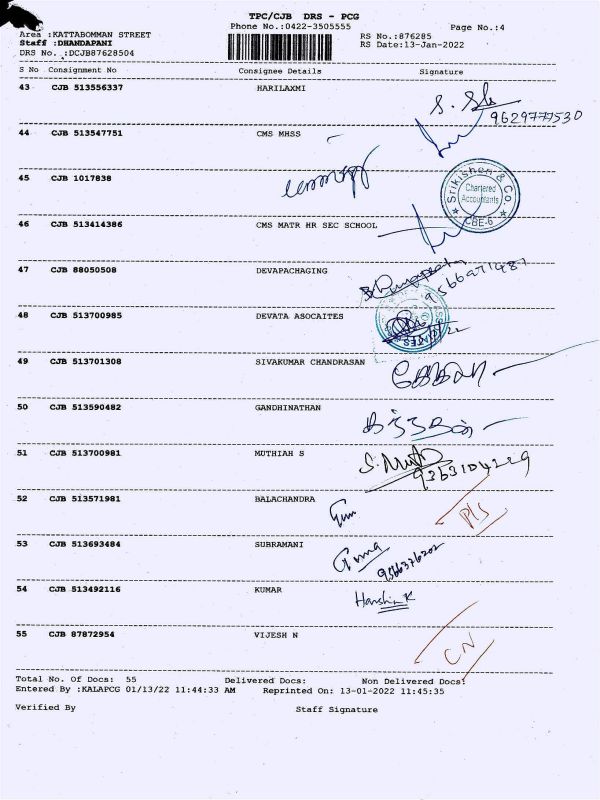 TPC/CJB DRS - PCG
Phone No.:0422-3505555 Page No.:4
Area :KATTABOMMAN STREET RS No.:876285
Staff :DHANDAPANI RS Date:13-Jan-2022
DRS No. :DCJB87628504
S No Consignment No Consignee Details Signature
43 CJB 513556337 HARILAXMI
9629777530
44 CJB 513547751 CMS MHSS
45 CJB 1017838
Srikishen & Co.
Chartered
Accountants
CBE-6
46 CJB 513414386 CMS MATR HR SEC SCHOOL
47 CJB 88050508 DEVAPACHAGING
48 CJB 513700985 DEVATA ASOCAITES
49 CJB 513701308 SIVAKUMAR CHANDRASAN
50 CJB 513590482 GANDHINATHAN
51 CJB 513700981 MUTHIAH S
52 CJB 513571981 BALACHANDRA
P/S
53 CJB 513693484 SUBRAMANI
54 CJB 513492116 KUMAR
Harshin K
55 CJB 87872954 VIJESH N
CN
Total No. Of Docs: 55 Delivered Docs: Non Delivered Docs:
Entered By :KALAPCG 01/13/22 11:44:33 AM Reprinted On: 13-01-2022 11:45:35
Verified By Staff Signature